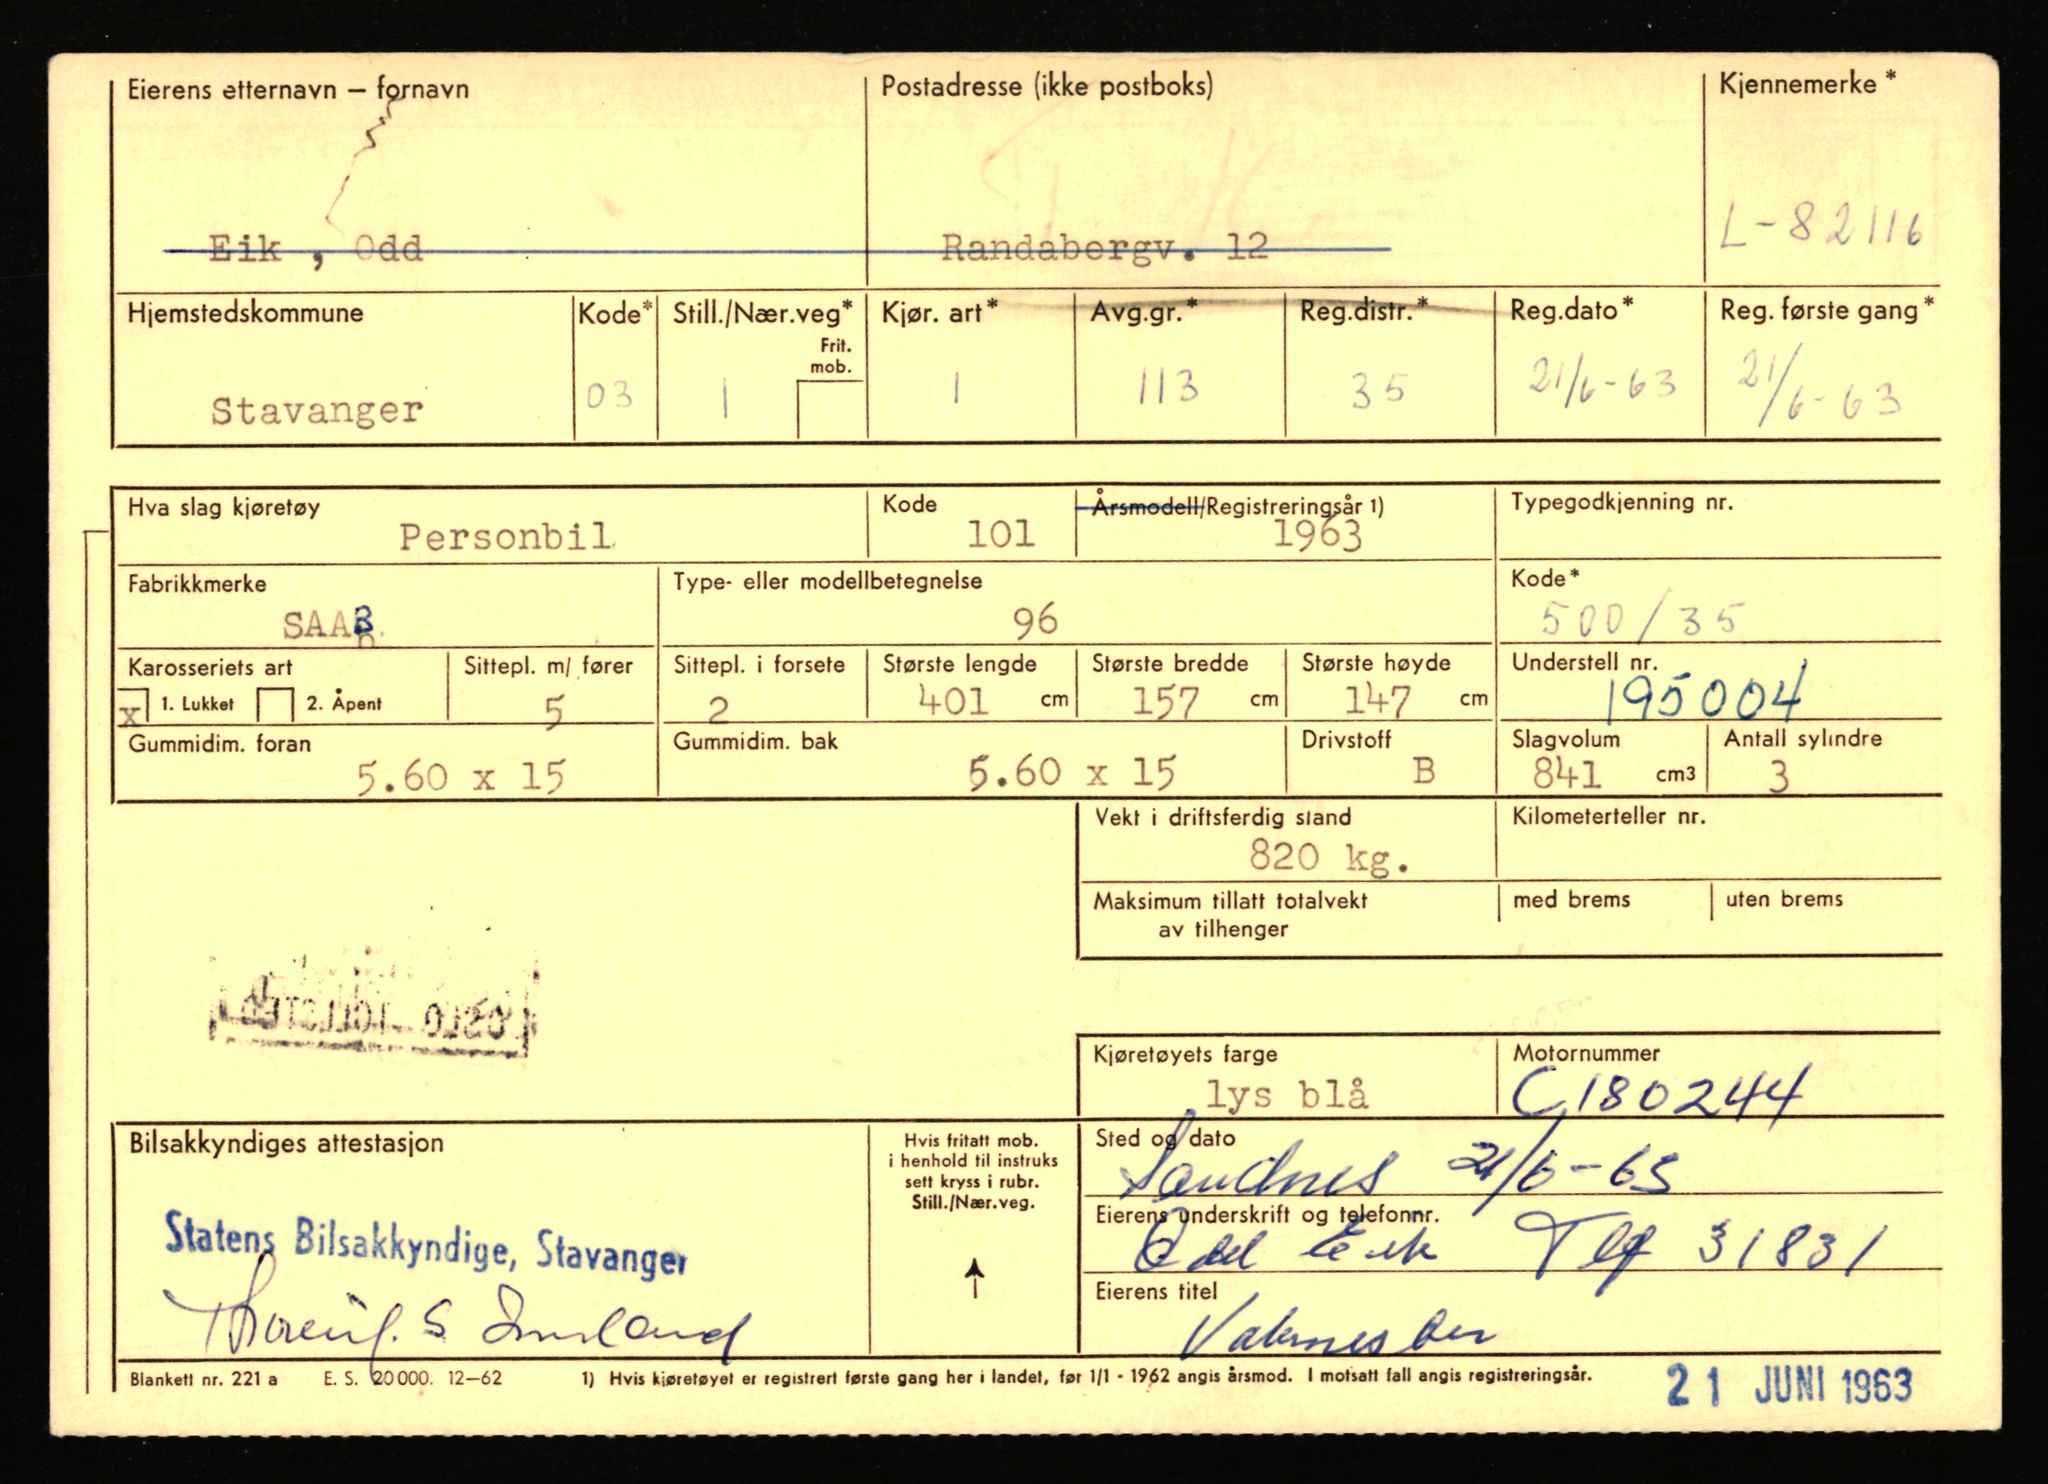 Eierens etternavn – fornavn Postadresse (ikke postboks) Kjennemerke*
Eik , Odd Randabergv. 12 L-82116
Hjemstedskommune Kode* Still./Nær.veg* Kjør. art* Avg.gr.* Reg.distr.* Reg.dato* Reg. første gang*
Frit.
mob.
Stavanger 03 1 1 113 35 21/6-63 21/6-63
Hva slag kjøretøy Kode Årsmodell/Registreringsår 1) Typegodkjenning nr.
Personbil 101 1963
Fabrikkmerke Type- eller modellbetegnelse Kode*
SAAB 96 500/35
Karosseriets art Sittepl. m/ fører Sittepl. i forsete Største lengde Største bredde Største høyde Understell nr.
x 1. Lukket 2. Åpent 5 2 401 cm 157 cm 147 cm 195004
Gummidim. foran Gummidim. bak Drivstoff Slagvolum Antall sylindre
5.60 x 15 5.60 x 15 B 841 cm3 3
Vekt i driftsferdig stand Kilometerteller nr.
820 kg.
Maksimum tillatt totalvekt med brems uten brems
av tilhenger
OSLO TOLLSTED
Kjøretøyets farge Motornummer
lys blå C180244
Bilsakkyndiges attestasjon Hvis fritatt mob. Sted og dato
i henhold til instruks
sett kryss i rubr.
Still./Nær.veg.
Sandnes 21/6-63
Eierens underskrift og telefonnr.
Statens Bilsakkyndige, Stavanger Odd Eik Tlf 31831
Eierens titel
S.
Blankett nr. 221 a E. S. 20 000. 12–62 1) Hvis kjøretøyet er registrert første gang her i landet, før 1/1 - 1962 angis årsmod. I motsatt fall angis registreringsår.
21 JUNI 1963